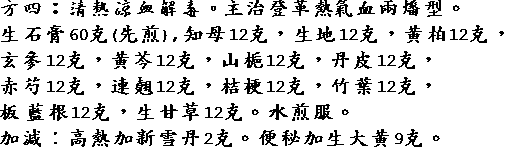 方四：清熱涼血解毒。主治登革熱氣血兩燔型。
生石膏60克(先煎)，知母12克，生地12克，黃柏12克，
玄參12克，黃芩12克，山梔12克，丹皮12克，
赤芍12克，連翹12克，桔梗12克，竹葉12克，
板藍根12克，生甘草12克。水煎服。
加減：高熱加新雪丹2克。便秘加生大黃9克。